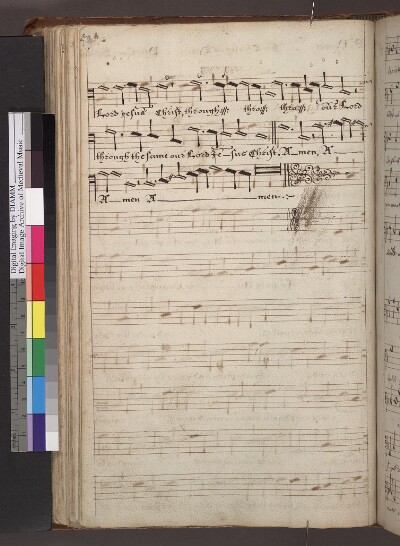 Lord Jesus Christ, through our Lord
through the same our Lord Je-sus Christ. A-men, A
A men A men.
Digital Imaging by DIAMM
Digital Image Archive of Medieval Music